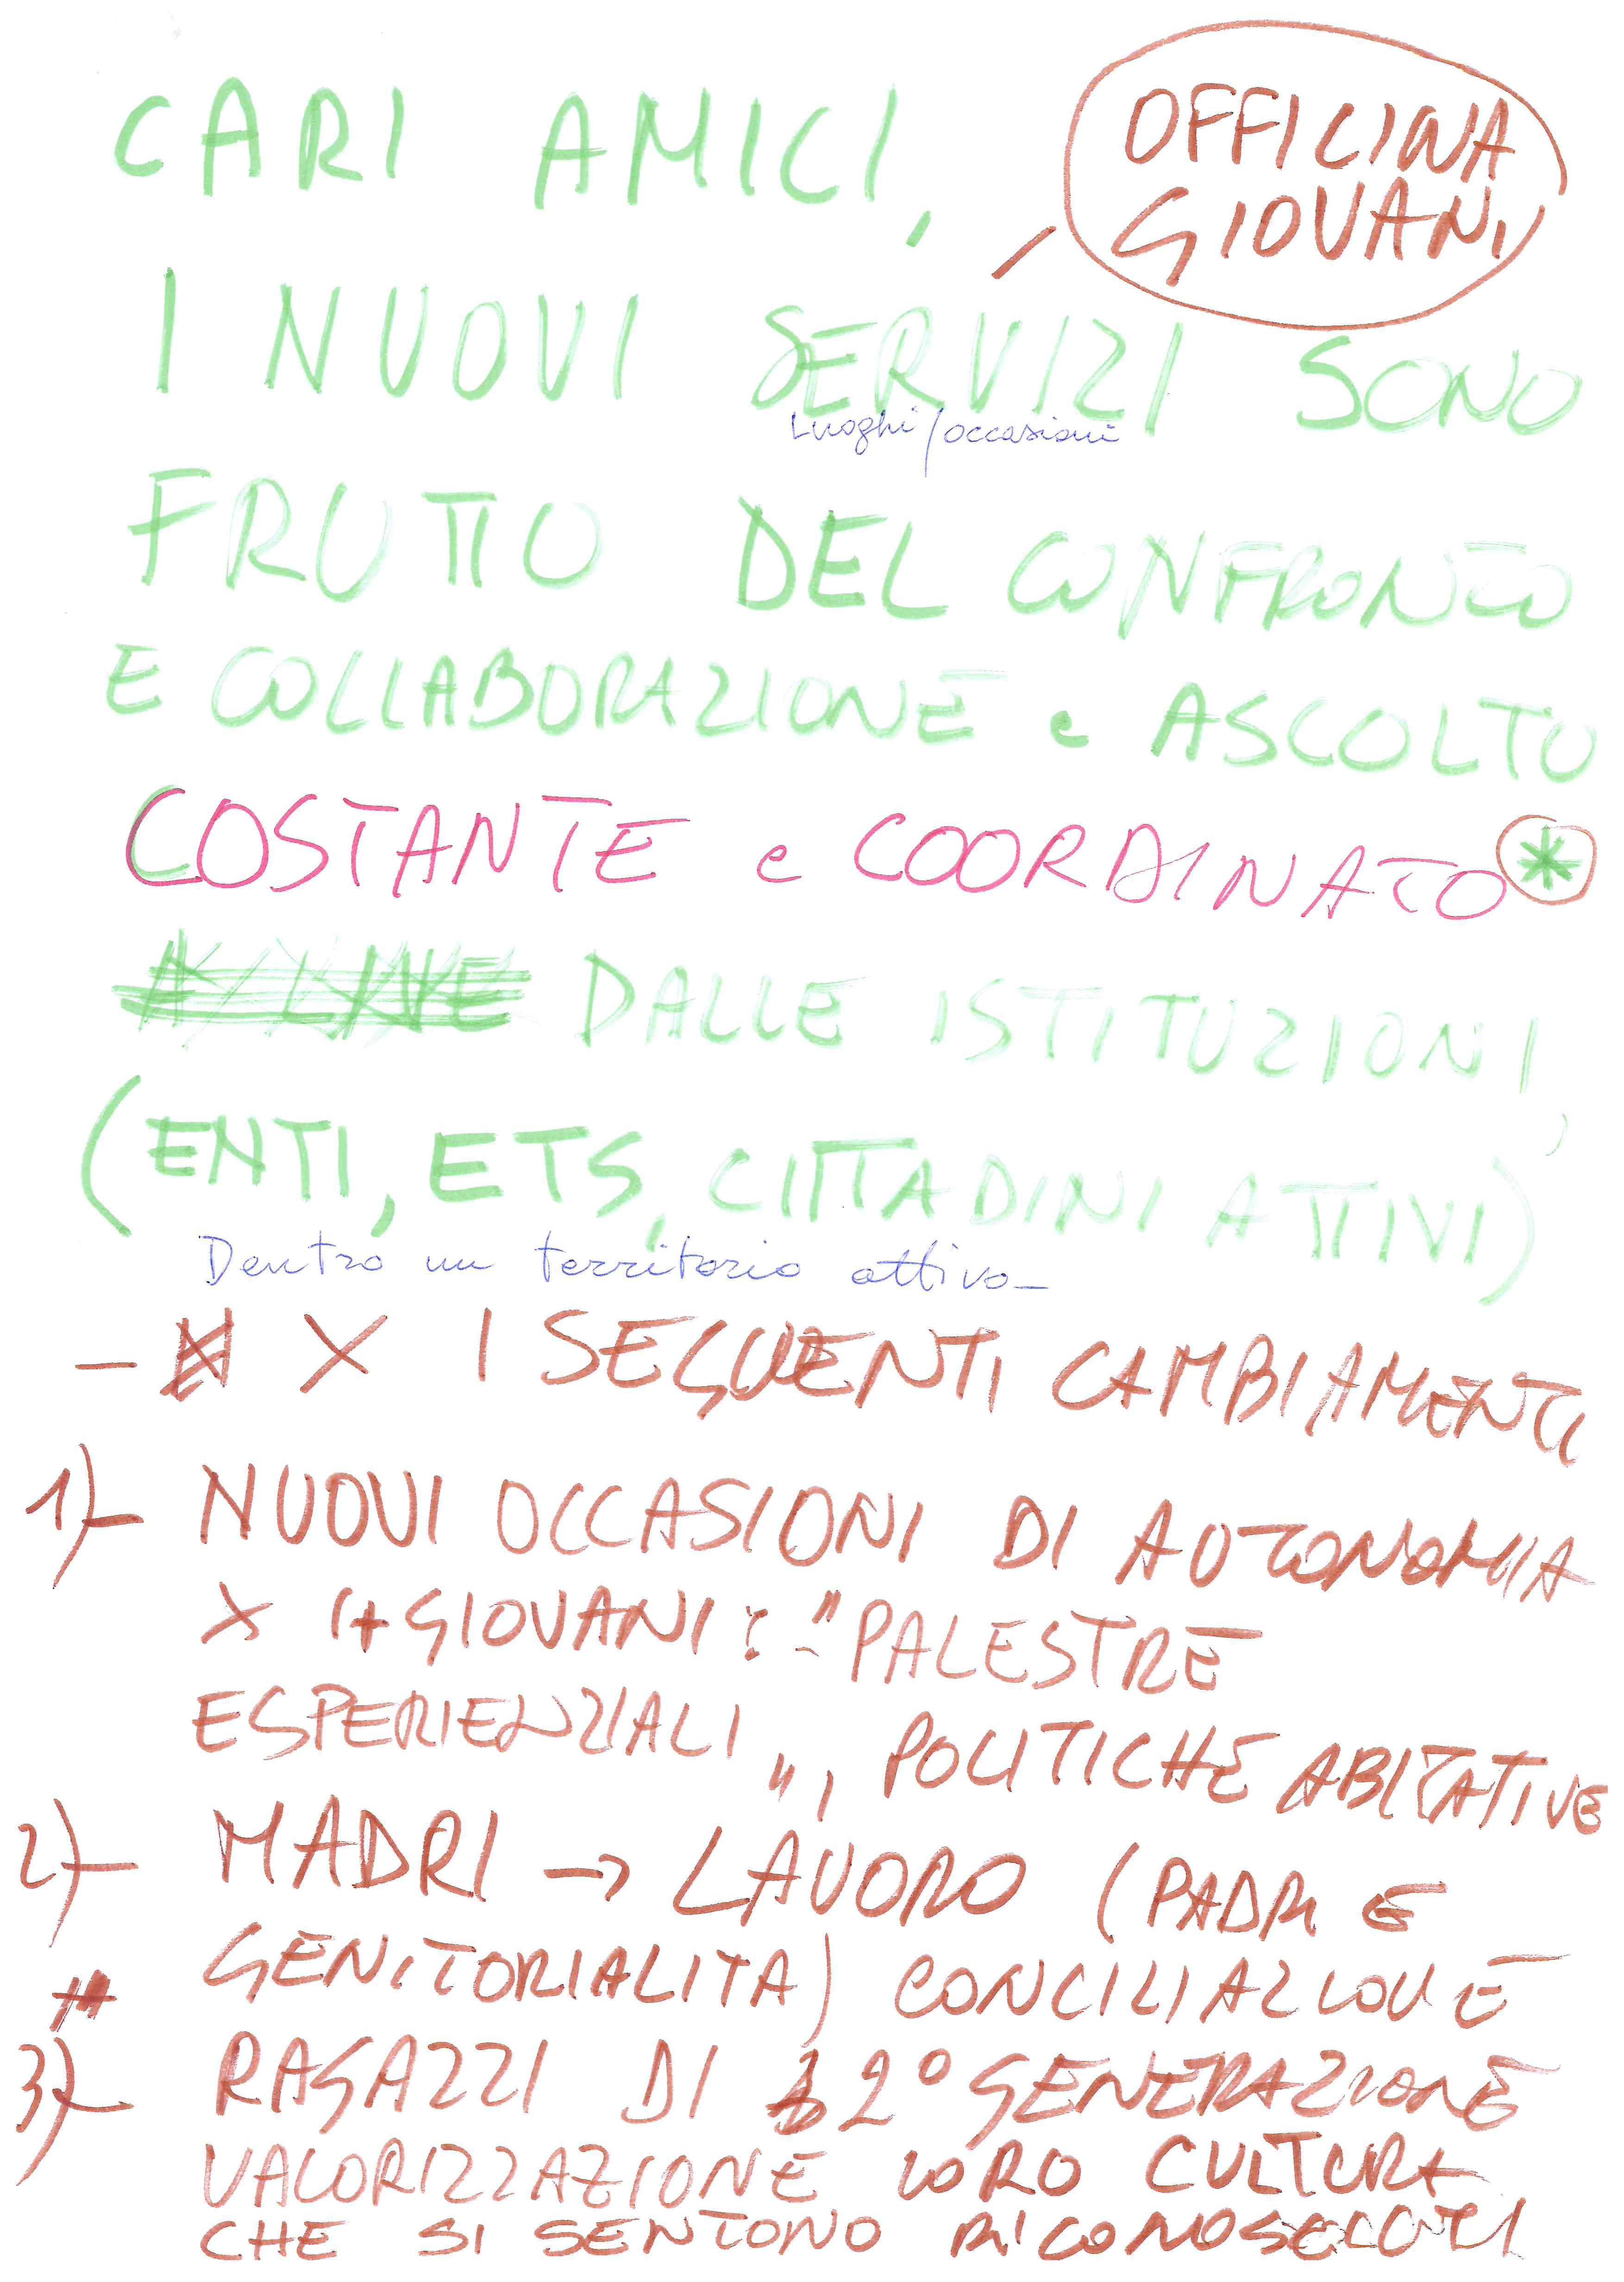 CARI AMICI,
OFFICINA
GIOVANI
I NUOVI SERVIZI SONO
Luoghi/occasioni
FRUTTO DEL CONFRONTO
E COLLABORAZIONE e ASCOLTO
COSTANTE e COORDINATO *
DALLE ISTITUZIONI,
(ENTI, ETS, CITTADINI ATTIVI)
Dentro un territorio attivo_
- X I SEGUENTI CAMBIAMENTI
1)- NUOVI OCCASIONI DI AUTONOMIA
X I + GIOVANI: "PALESTRE
ESPERIENZIALI", POLITICHE ABITATIVE
2)- MADRI -> LAVORO (PADRI E
GENITORIALITA) CONCILIAZIONE
3)- RAGAZZI DI 2° GENERAZIONE
VALORIZZAZIONE LORO CULTURA
CHE SI SENTONO RICONOSCIUTI